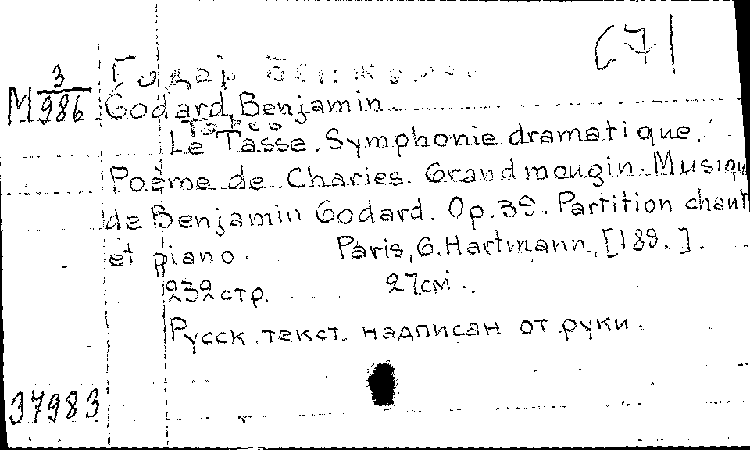 671
М 3/986
Годар Бенжамен
Godard, Benjamin
Тассо
Le Tasse. Symphonie dramatique.
Poème de Charles. Grandmougin. Musique
de Benjamin Godard. Op. 39. Partition chant
et piano. Paris, G. Hartmann, [188. ].
232 стр. 27 см.
Русск. текст. надписан от руки.
37983